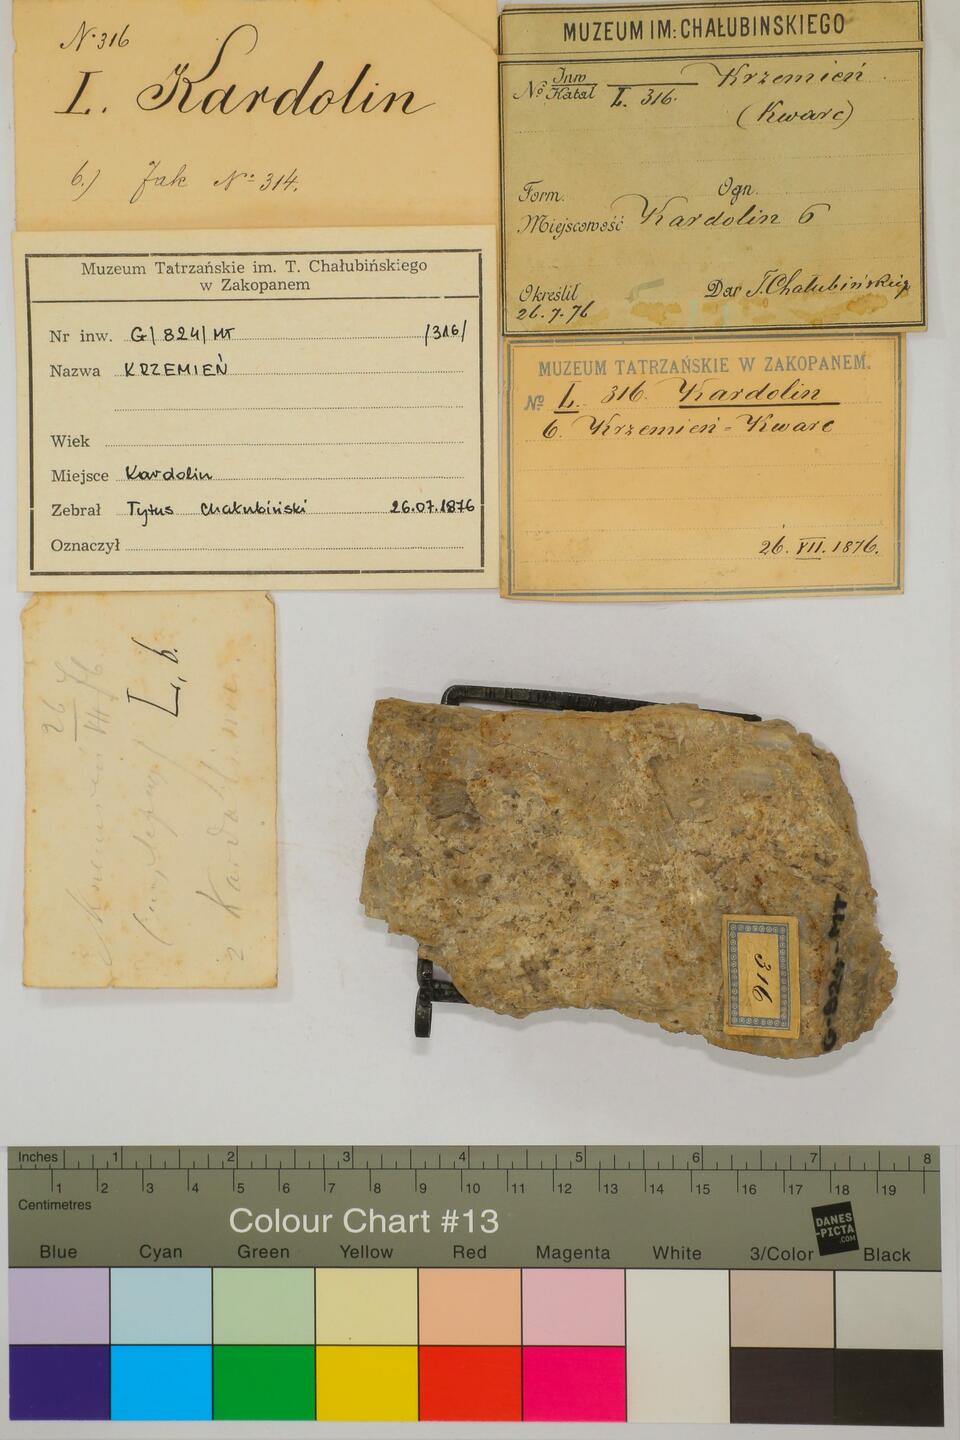 N. 316
I. Kardolin
6.) Jak No 314.
MUZEUM IM: CHAŁUBINSKIEGO
No Inw Katal I. 316. Krzemień
(Kwarc)
Form. Ogn.
Miejscowość Kardolin 6
Określił Dar T. Chałubińskieg
26.7.76
Muzeum Tatrzańskie im. T. Chałubińskiego
w Zakopanem
Nr inw. G/824/MT /316/
Nazwa KRZEMIEŃ
Wiek
Miejsce Kardolin
Zebrał Tytus Chałubiński 26.07.1876
Oznaczył
MUZEUM TATRZAŃSKIE W ZAKOPANEM.
No I. 316. Kardolin
6. Krzemień = Kwarc
26. VII. 1876.
I, 6.
26
VII 76
316
G-824-MT
Inches 1 2 3 4 5 6 7 8
1 2 3 4 5 6 7 8 9 10 11 12 13 14 15 16 17 18 19
Centimetres
Colour Chart #13
DANES
-PICTA
.COM
Blue Cyan Green Yellow Red Magenta White 3/Color Black